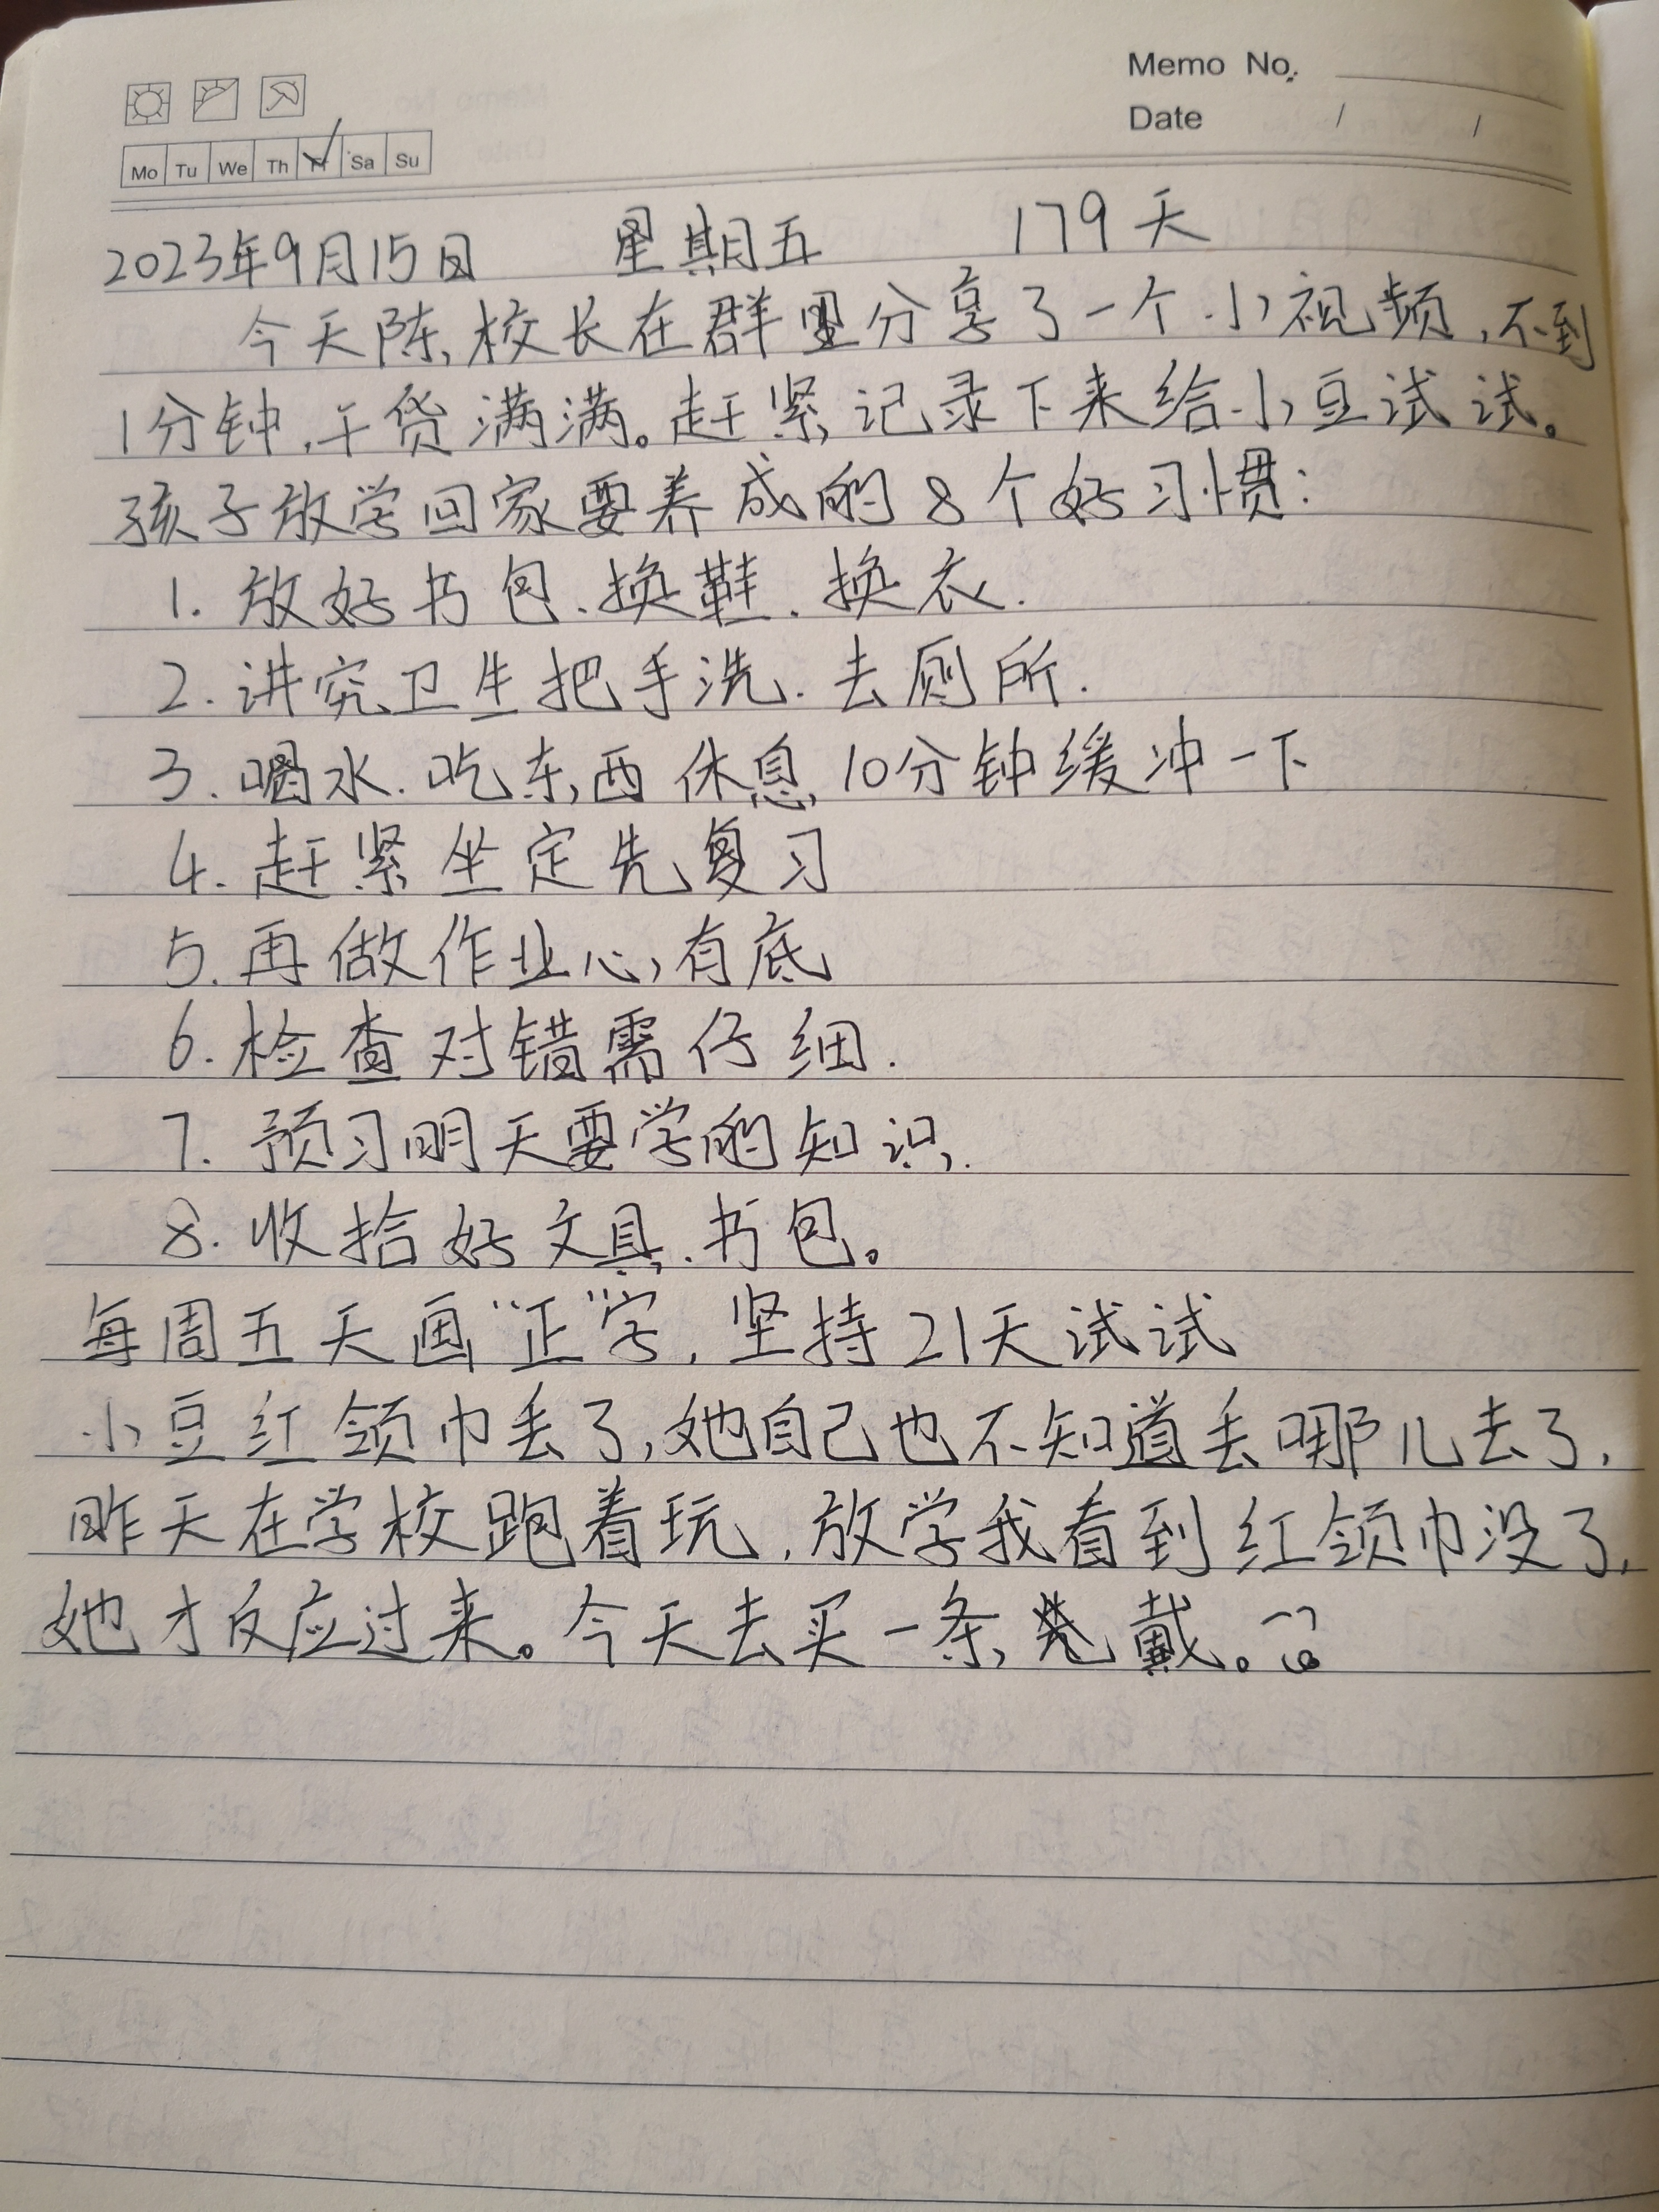 Memo No.
Date / /
Mo Tu We Th Fr Sa Su
2023年9月15日 星期五 179天
今天陈校长在群里分享了一个小视频,不到
1分钟,干货满满。赶紧记录下来给小豆试试。
孩子放学回家要养成的8个好习惯:
1. 放好书包、换鞋、换衣.
2. 讲究卫生把手洗.去厕所.
3. 喝水.吃东西休息10分钟缓冲一下
4. 赶紧坐定先复习
5. 再做作业心有底
6. 检查对错需仔细.
7. 预习明天要学的知识.
8. 收拾好文具.书包。
每周五天画“正”字,坚持21天试试
小豆红领巾丢了,她自己也不知道丢哪儿去了,
昨天在学校跑着玩,放学我看到红领巾没了,
她才反应过来。今天去买一条先戴。